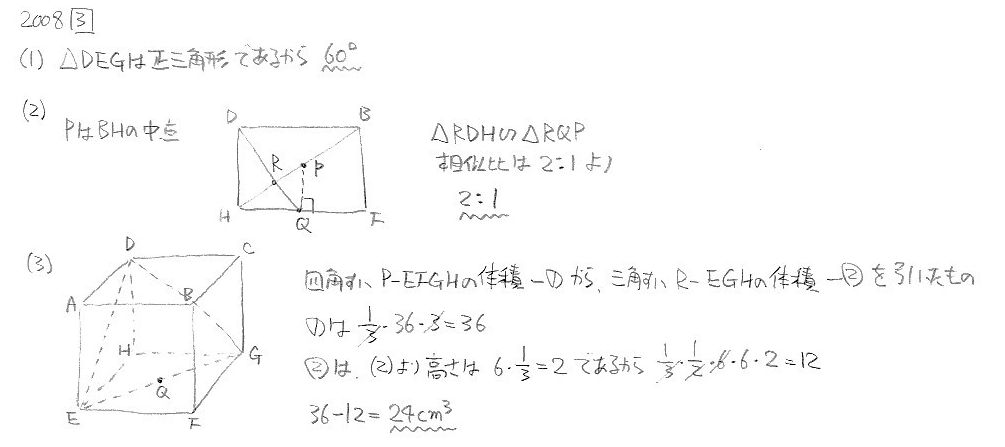 2008 3
(1) △DEGは正三角形であるから 60°
(2)
PはBHの中点
D B
R P
H Q F
△RDH∽△RQP
相似比は 2:1 より
2:1
(3)
D C
A B
H G
Q
E F
四角すい P-EFGHの体積―①から、三角すい R-EGHの体積―②を引いたもの
①は 1/3・36・3=36
②は、(2)より高さは 6・1/3=2 であるから 1/3・1/2・6・6・2=12
36-12=24cm³